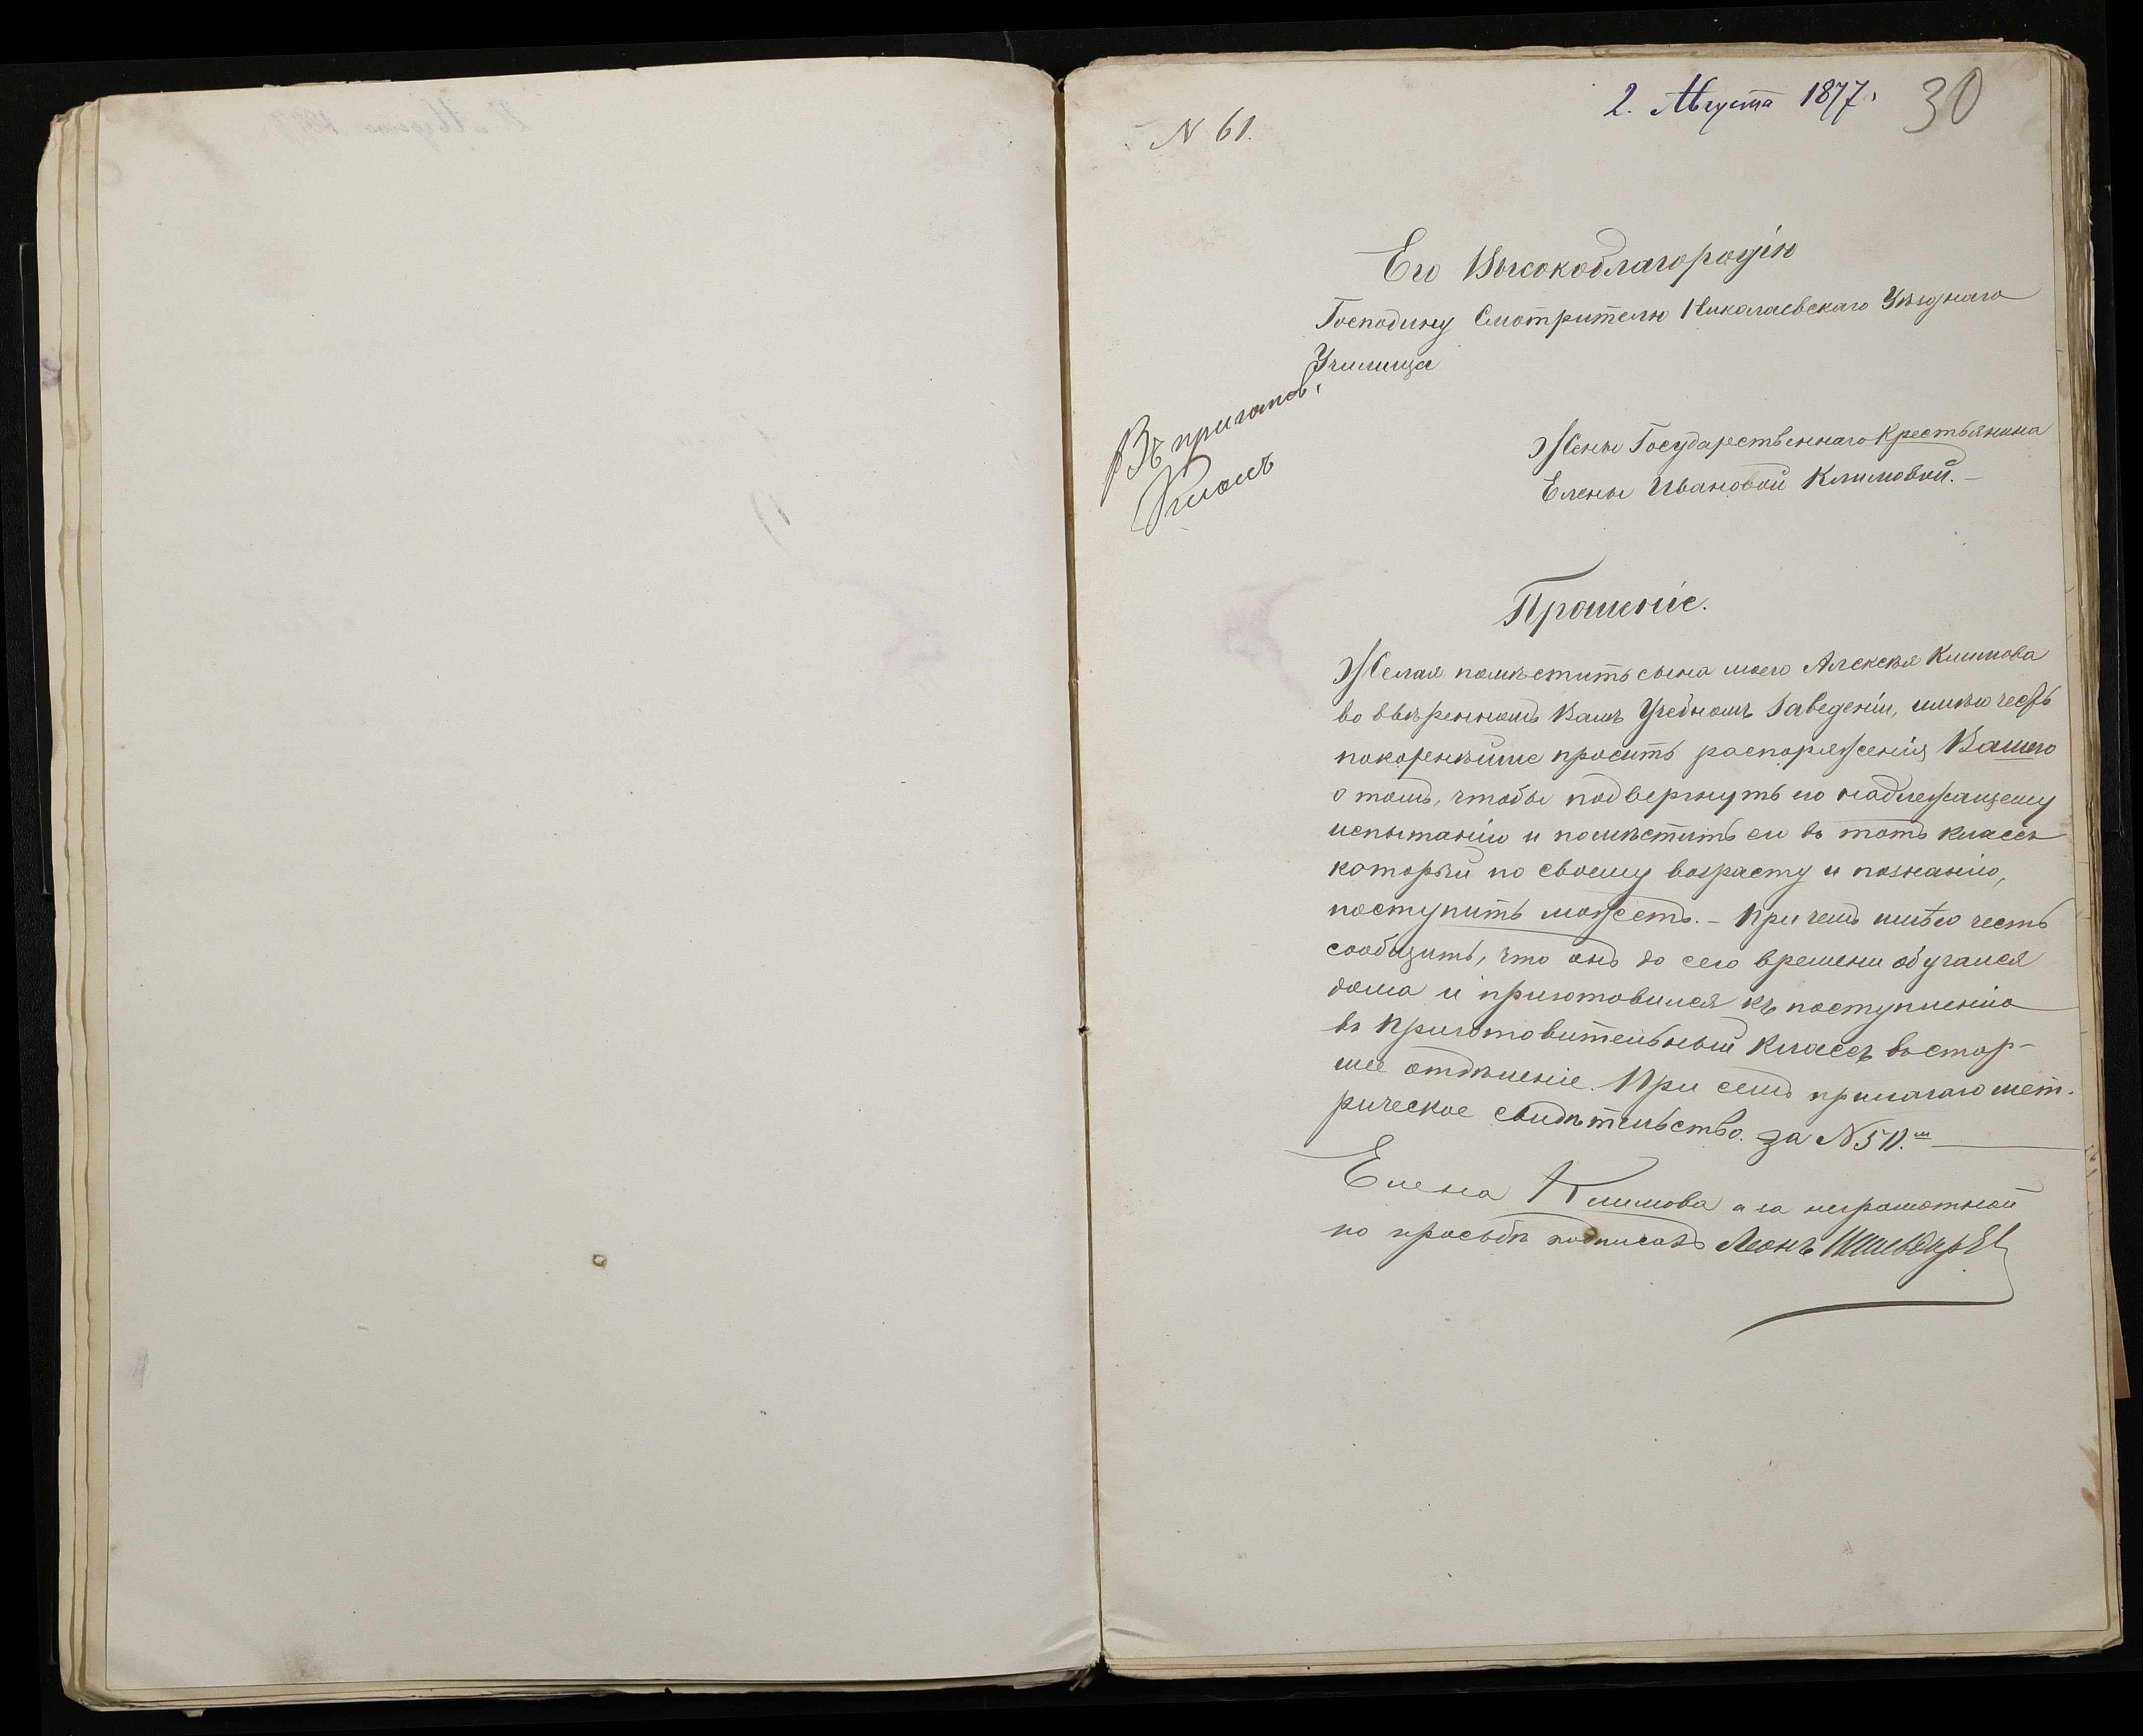 2. Августа 1877.
30
N 61.
Его Высокоблагородію
Господину Смотрителю Николаевскаго Уѣзднаго
Училища
Въ приготов.
Жены Государственнаго Крестьянина
Елены Ивановой Климовой. –
Прошеніе.
Желая помѣстить сына моего Алексѣя Климова
во ввѣренномъ Вамъ Учебномъ Заведеніи, имѣю честь
покорнѣйше просить распоряженія Вашего
о томъ, чтобы подвергнуть его надлежащему
испытанію и помѣстить его въ тотъ классъ
который по своему возрасту и познанію,
поступить можетъ. – При чемъ имѣю честь
сообщить, что онъ до сего времени обучался
дома и приготовился къ поступленію
въ Приготовительный Классъ въ стар-
шее отдѣленіе. При семъ прилагаю мет-
рическое свидѣтельство. за N 511.
Елена Климова а за неграмотной
по просьбѣ подписалъ Леонъ